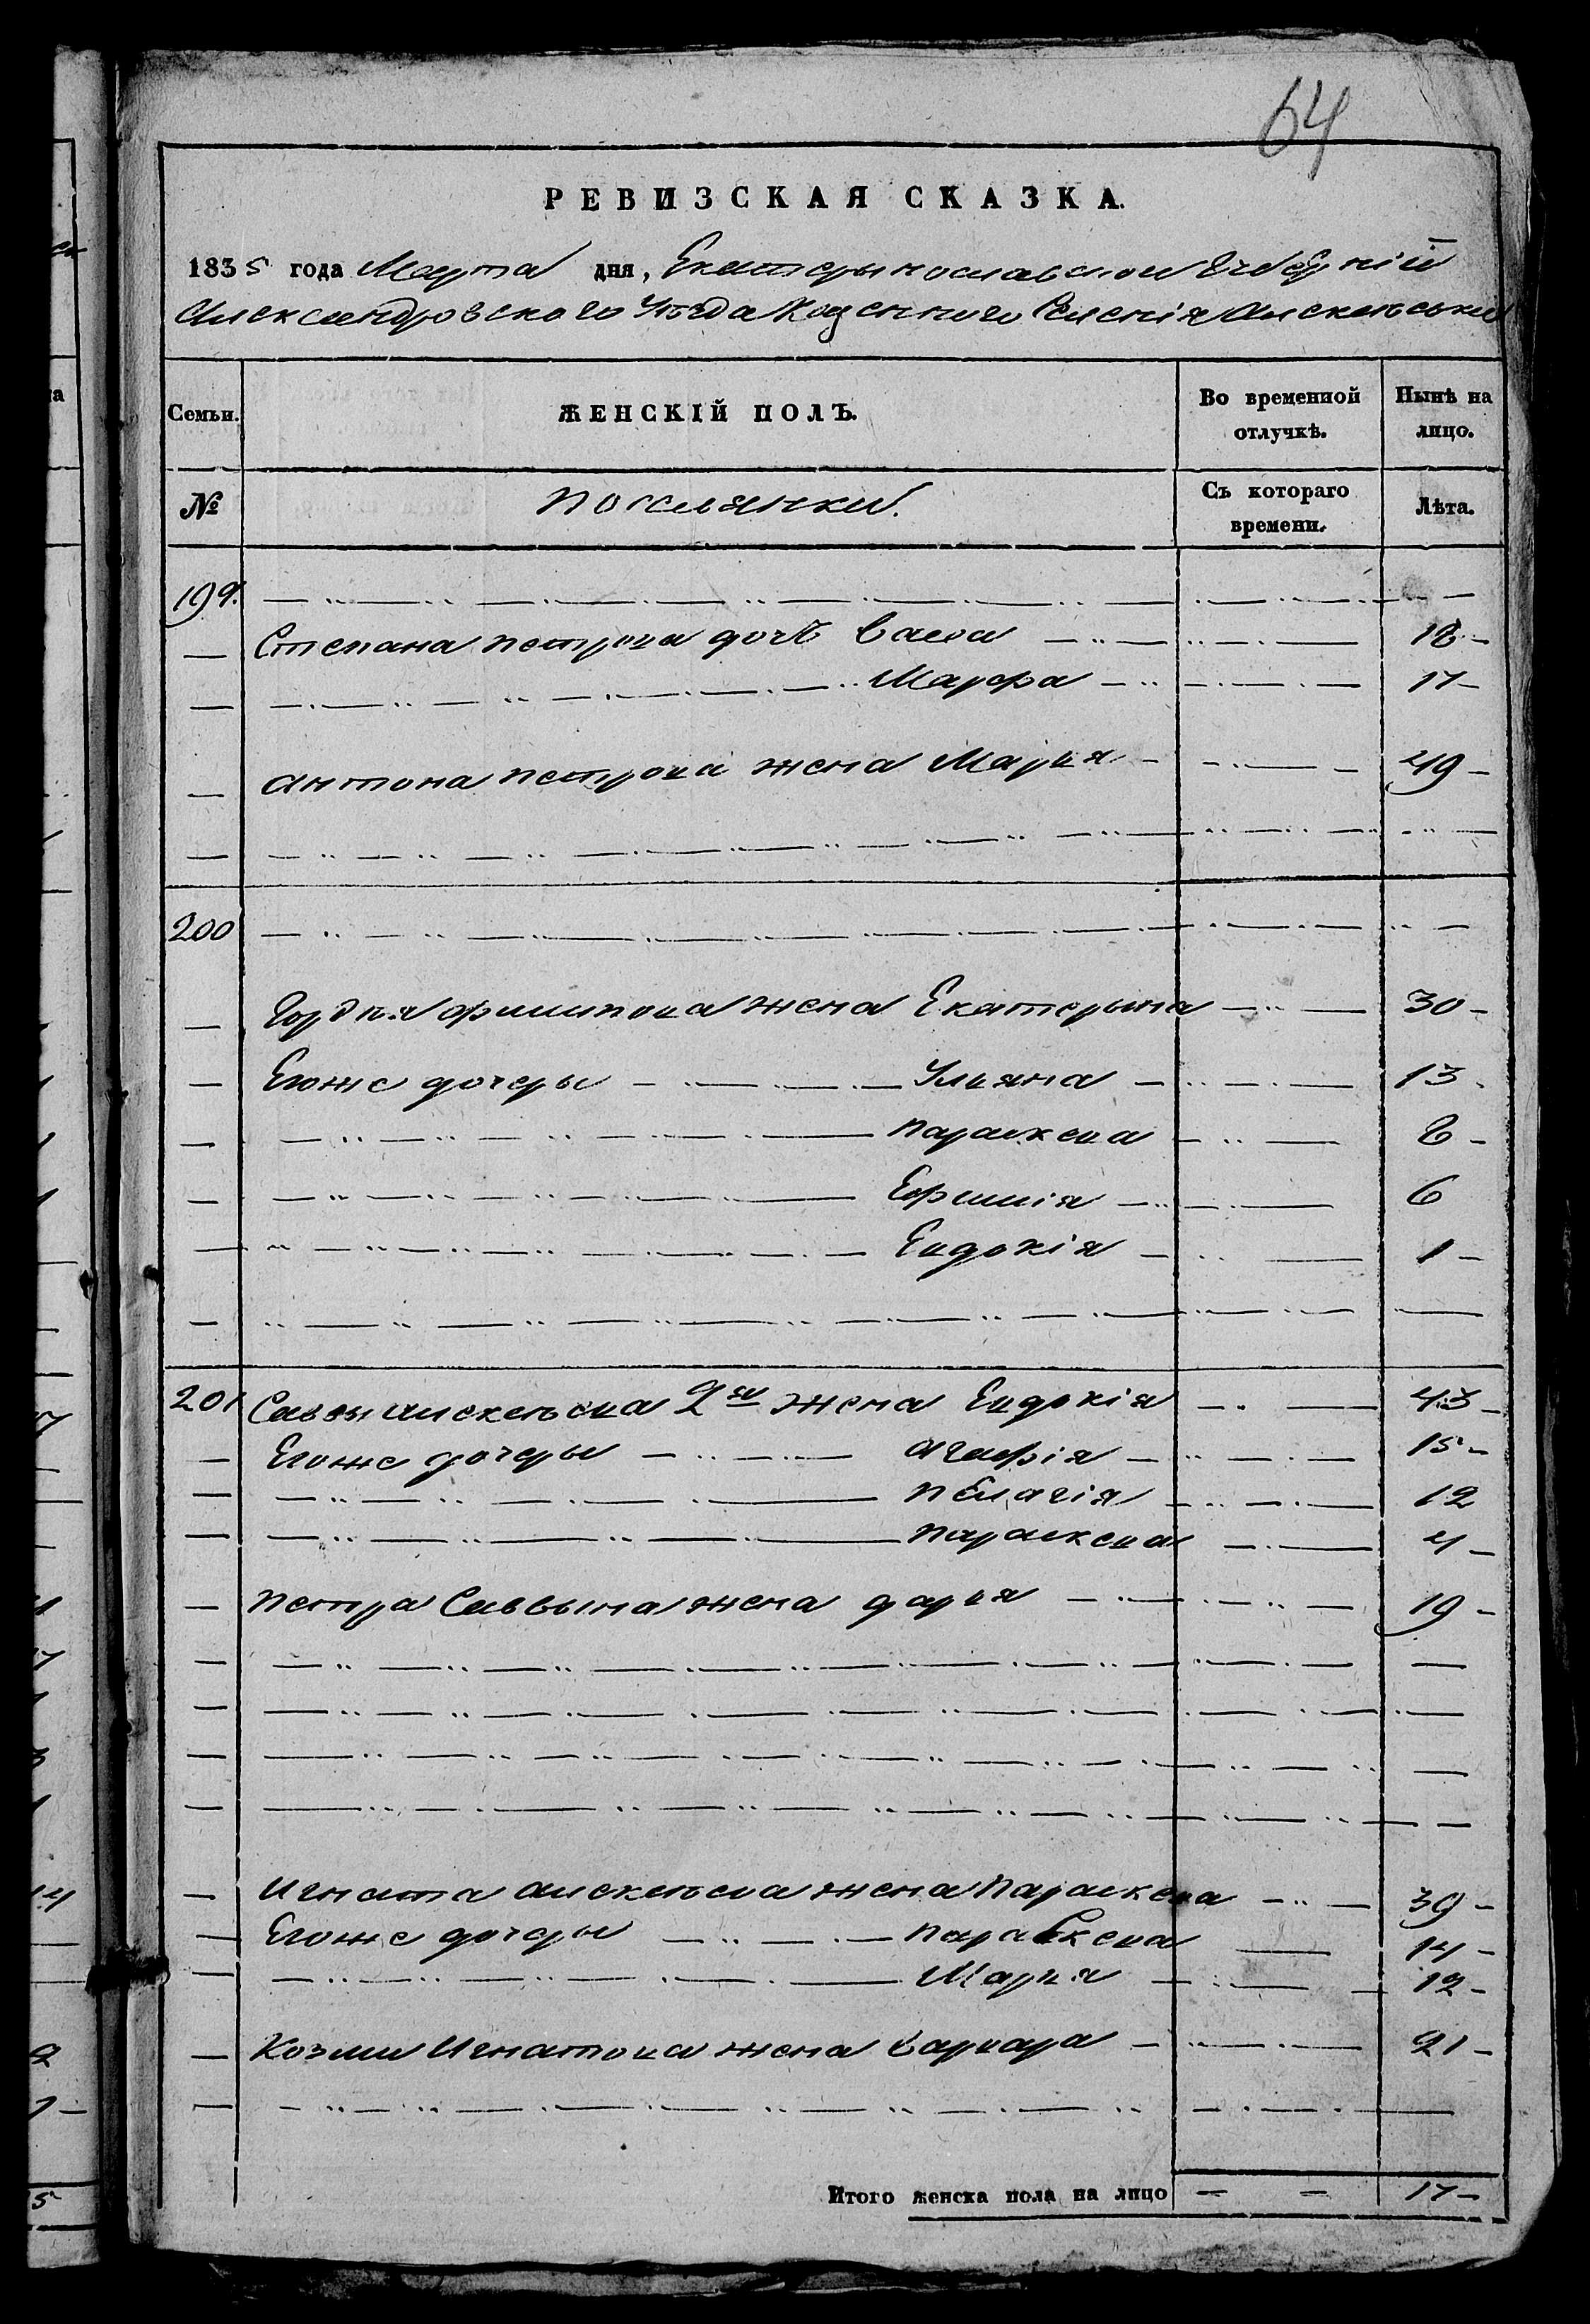 64
РЕВИЗСКАЯ СКАЗКА.
1835 года Марта дня, Екатерынославской Губерніи
Александровского Уезда Козенного Селенія Алексеевки
Семьи. ЖЕНСКІЙ ПОЛЪ. Во временной отлучкѣ. Нынѣ на лицо.
№ поселянки. Съ котораго времени. Лѣта.
199.
Степана петрова дочь Васса 18
Марфа 17
антона петрова жена Мария 49
200
Гордея филипова жена Екатерына 30
Егоже дочеры Улияна 13
параскева 8
Ефимія 6
Евдокія 1
201 Саввы алексеева 2я жена Евдокія 43
Егоже дочеры агафія 15
пелагія 12
параскева 4
петра Саввына жена дария 19
Игната алексеева жена параскева 39
Егоже дочеры параскева 14
Мария 12
Козми Игнатова жена варвара 21
Итого женска пола на лицо 17